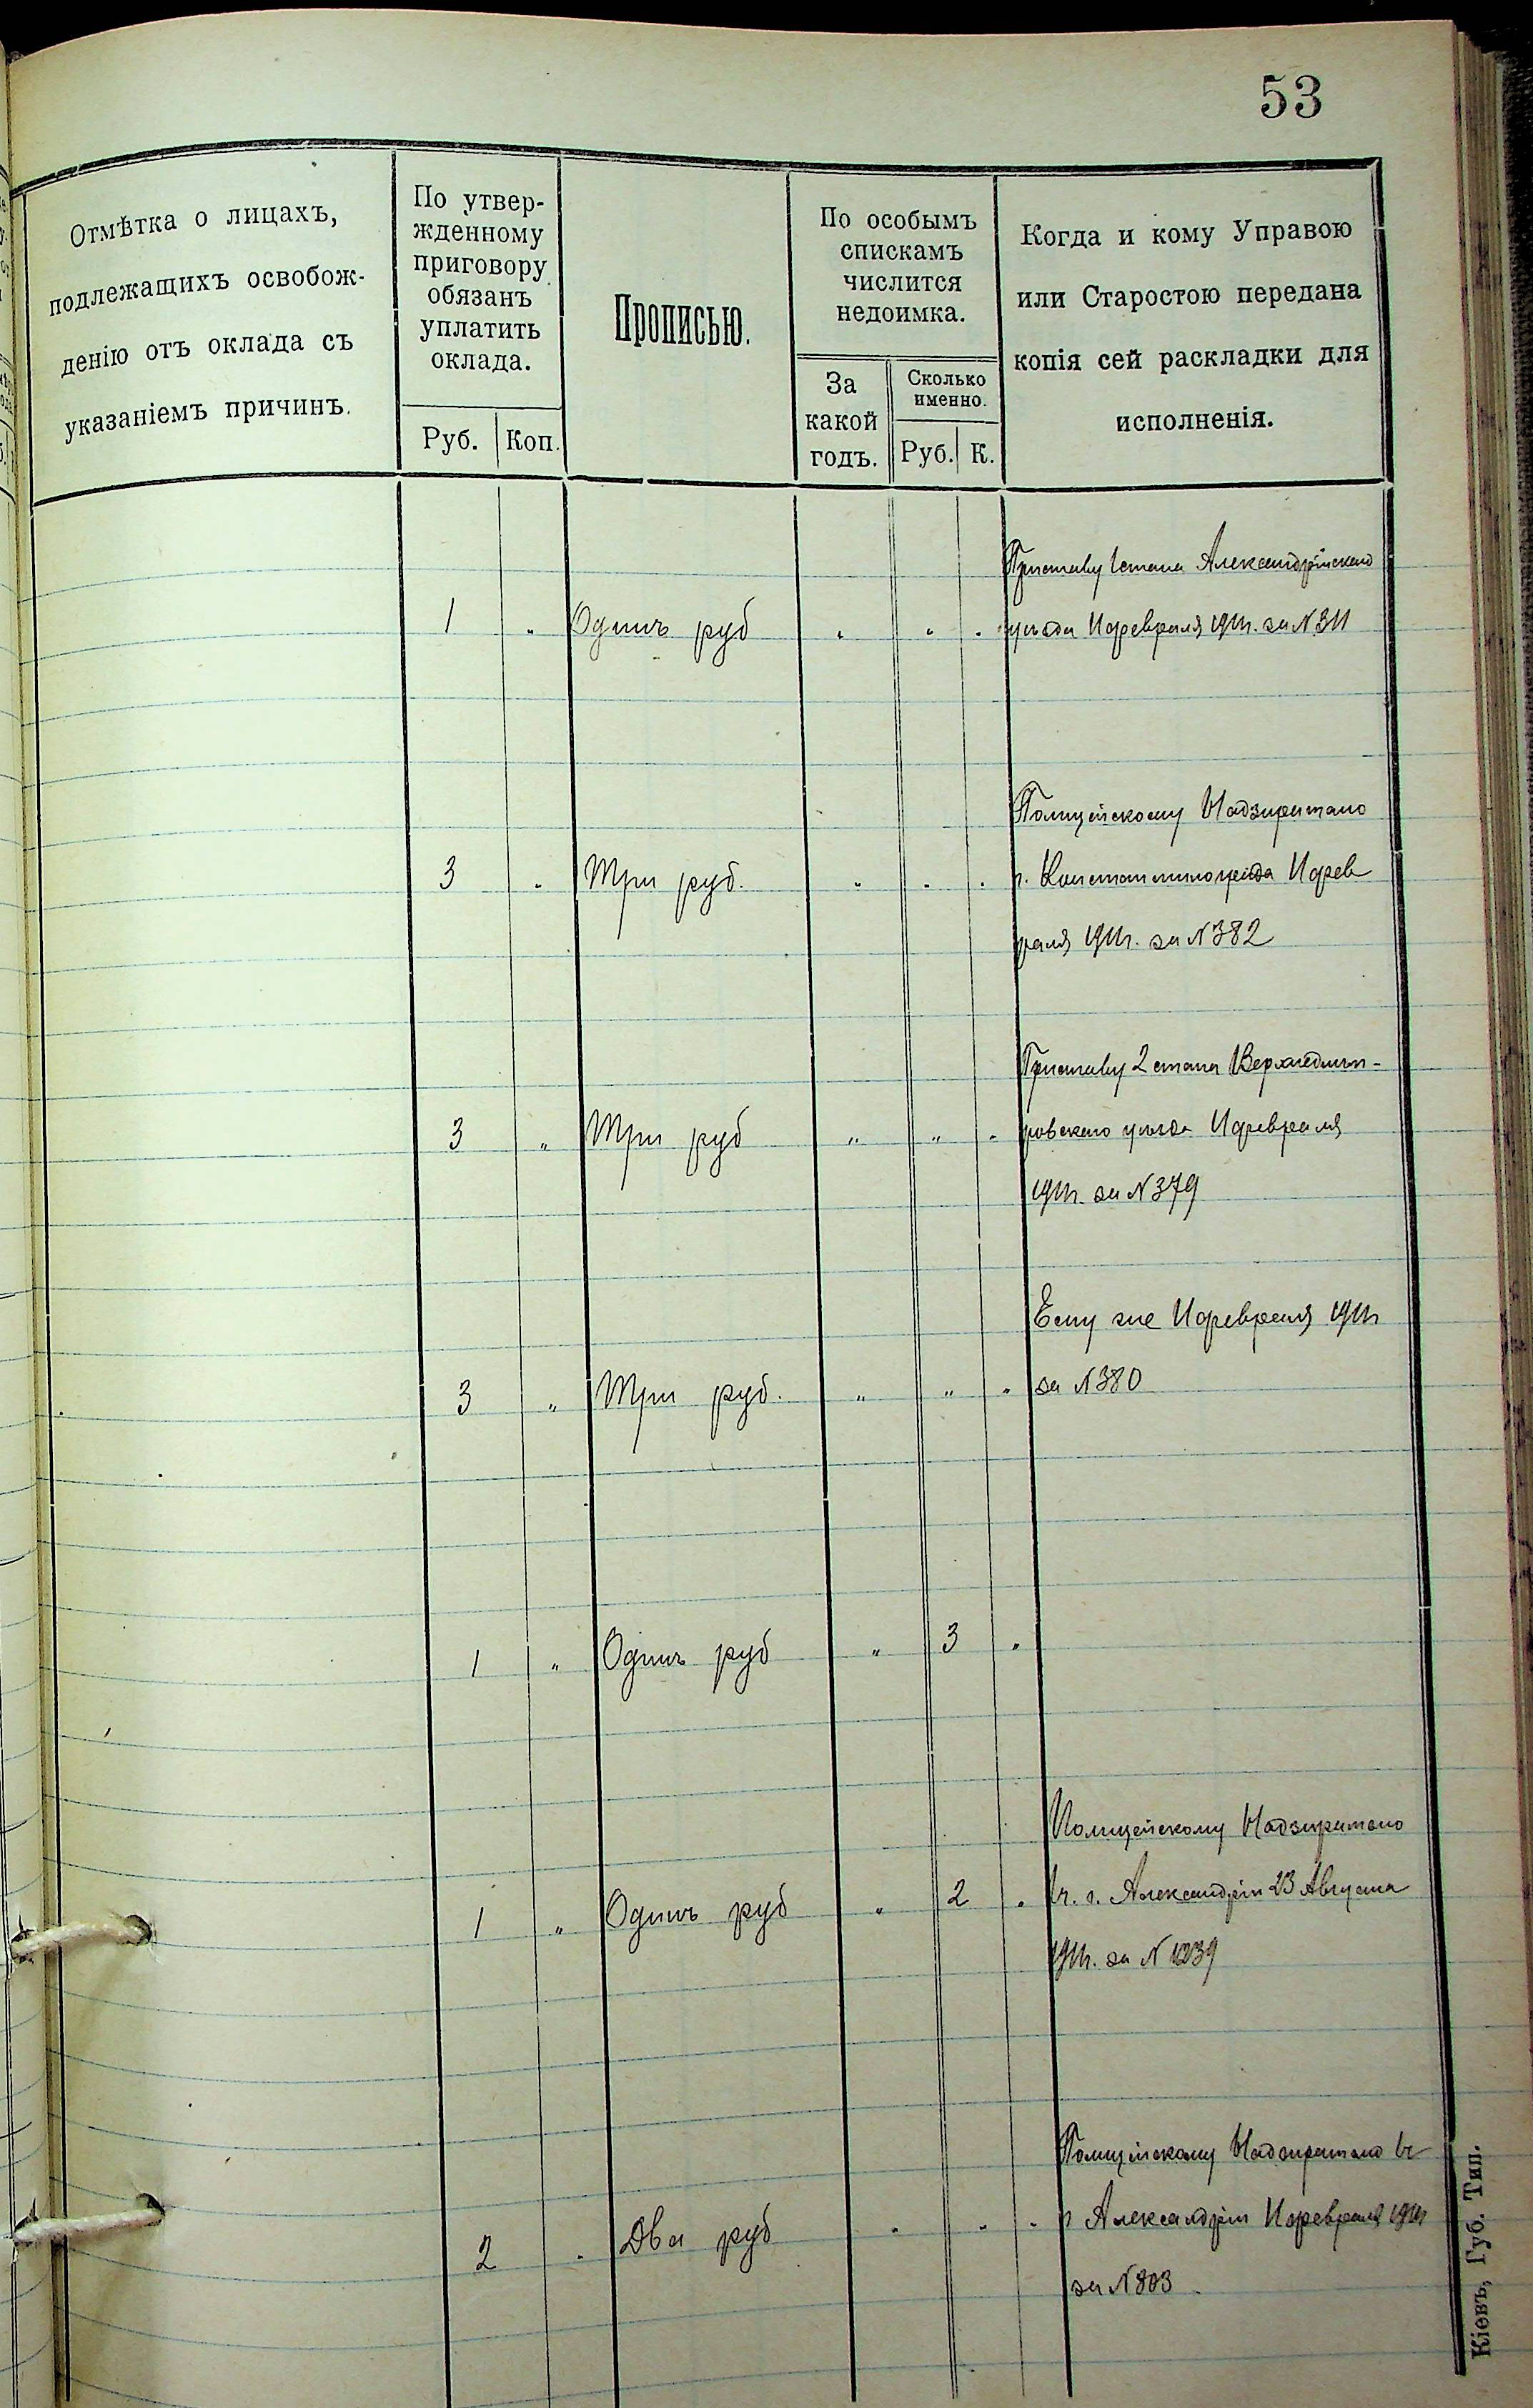 53
Отмѣтка о лицахъ,
подлежащихъ освобож-
денію отъ оклада съ
указаніемъ причинъ.
По утвер-
жденному
приговору
обязанъ
уплатить
оклада.
Руб. Коп.
Прописью.
По особымъ
спискамъ
числится
недоимка.
За
какой
годъ.
Сколько
именно.
Руб. К.
Когда и кому Управою
или Старостою передана
копія сей раскладки для
исполненія.
Приставу 1 стана Александрійскаго
1 " Одинъ руб " " " уѣзда 11 февраля 1911 г. за N 311
Полицейскому Надзирателю
3 " Три руб. " " " г. Константинограда 11 фев
раля 1911 г. за N 382
Приставу 2 стана Верхнеднѣп-
3 " Три руб " " " ровскаго уѣзда 11 февраля
1911 г. за N 379
Ему же 11 февраля 1911 г
3 " Три руб. " " " за N 380
1 " Одинъ руб " 3 "
Полицейскому Надзирателю
1 " Одинъ руб " 2 " 1 ч. г. Александріи 23 Августа
1911 г. за N
Полицейскому Надзирателю 1 ч
2 " Два руб " " " г Александріи 11 февраля 1911 г
за N 303
Кіевъ, Губ. Тип.